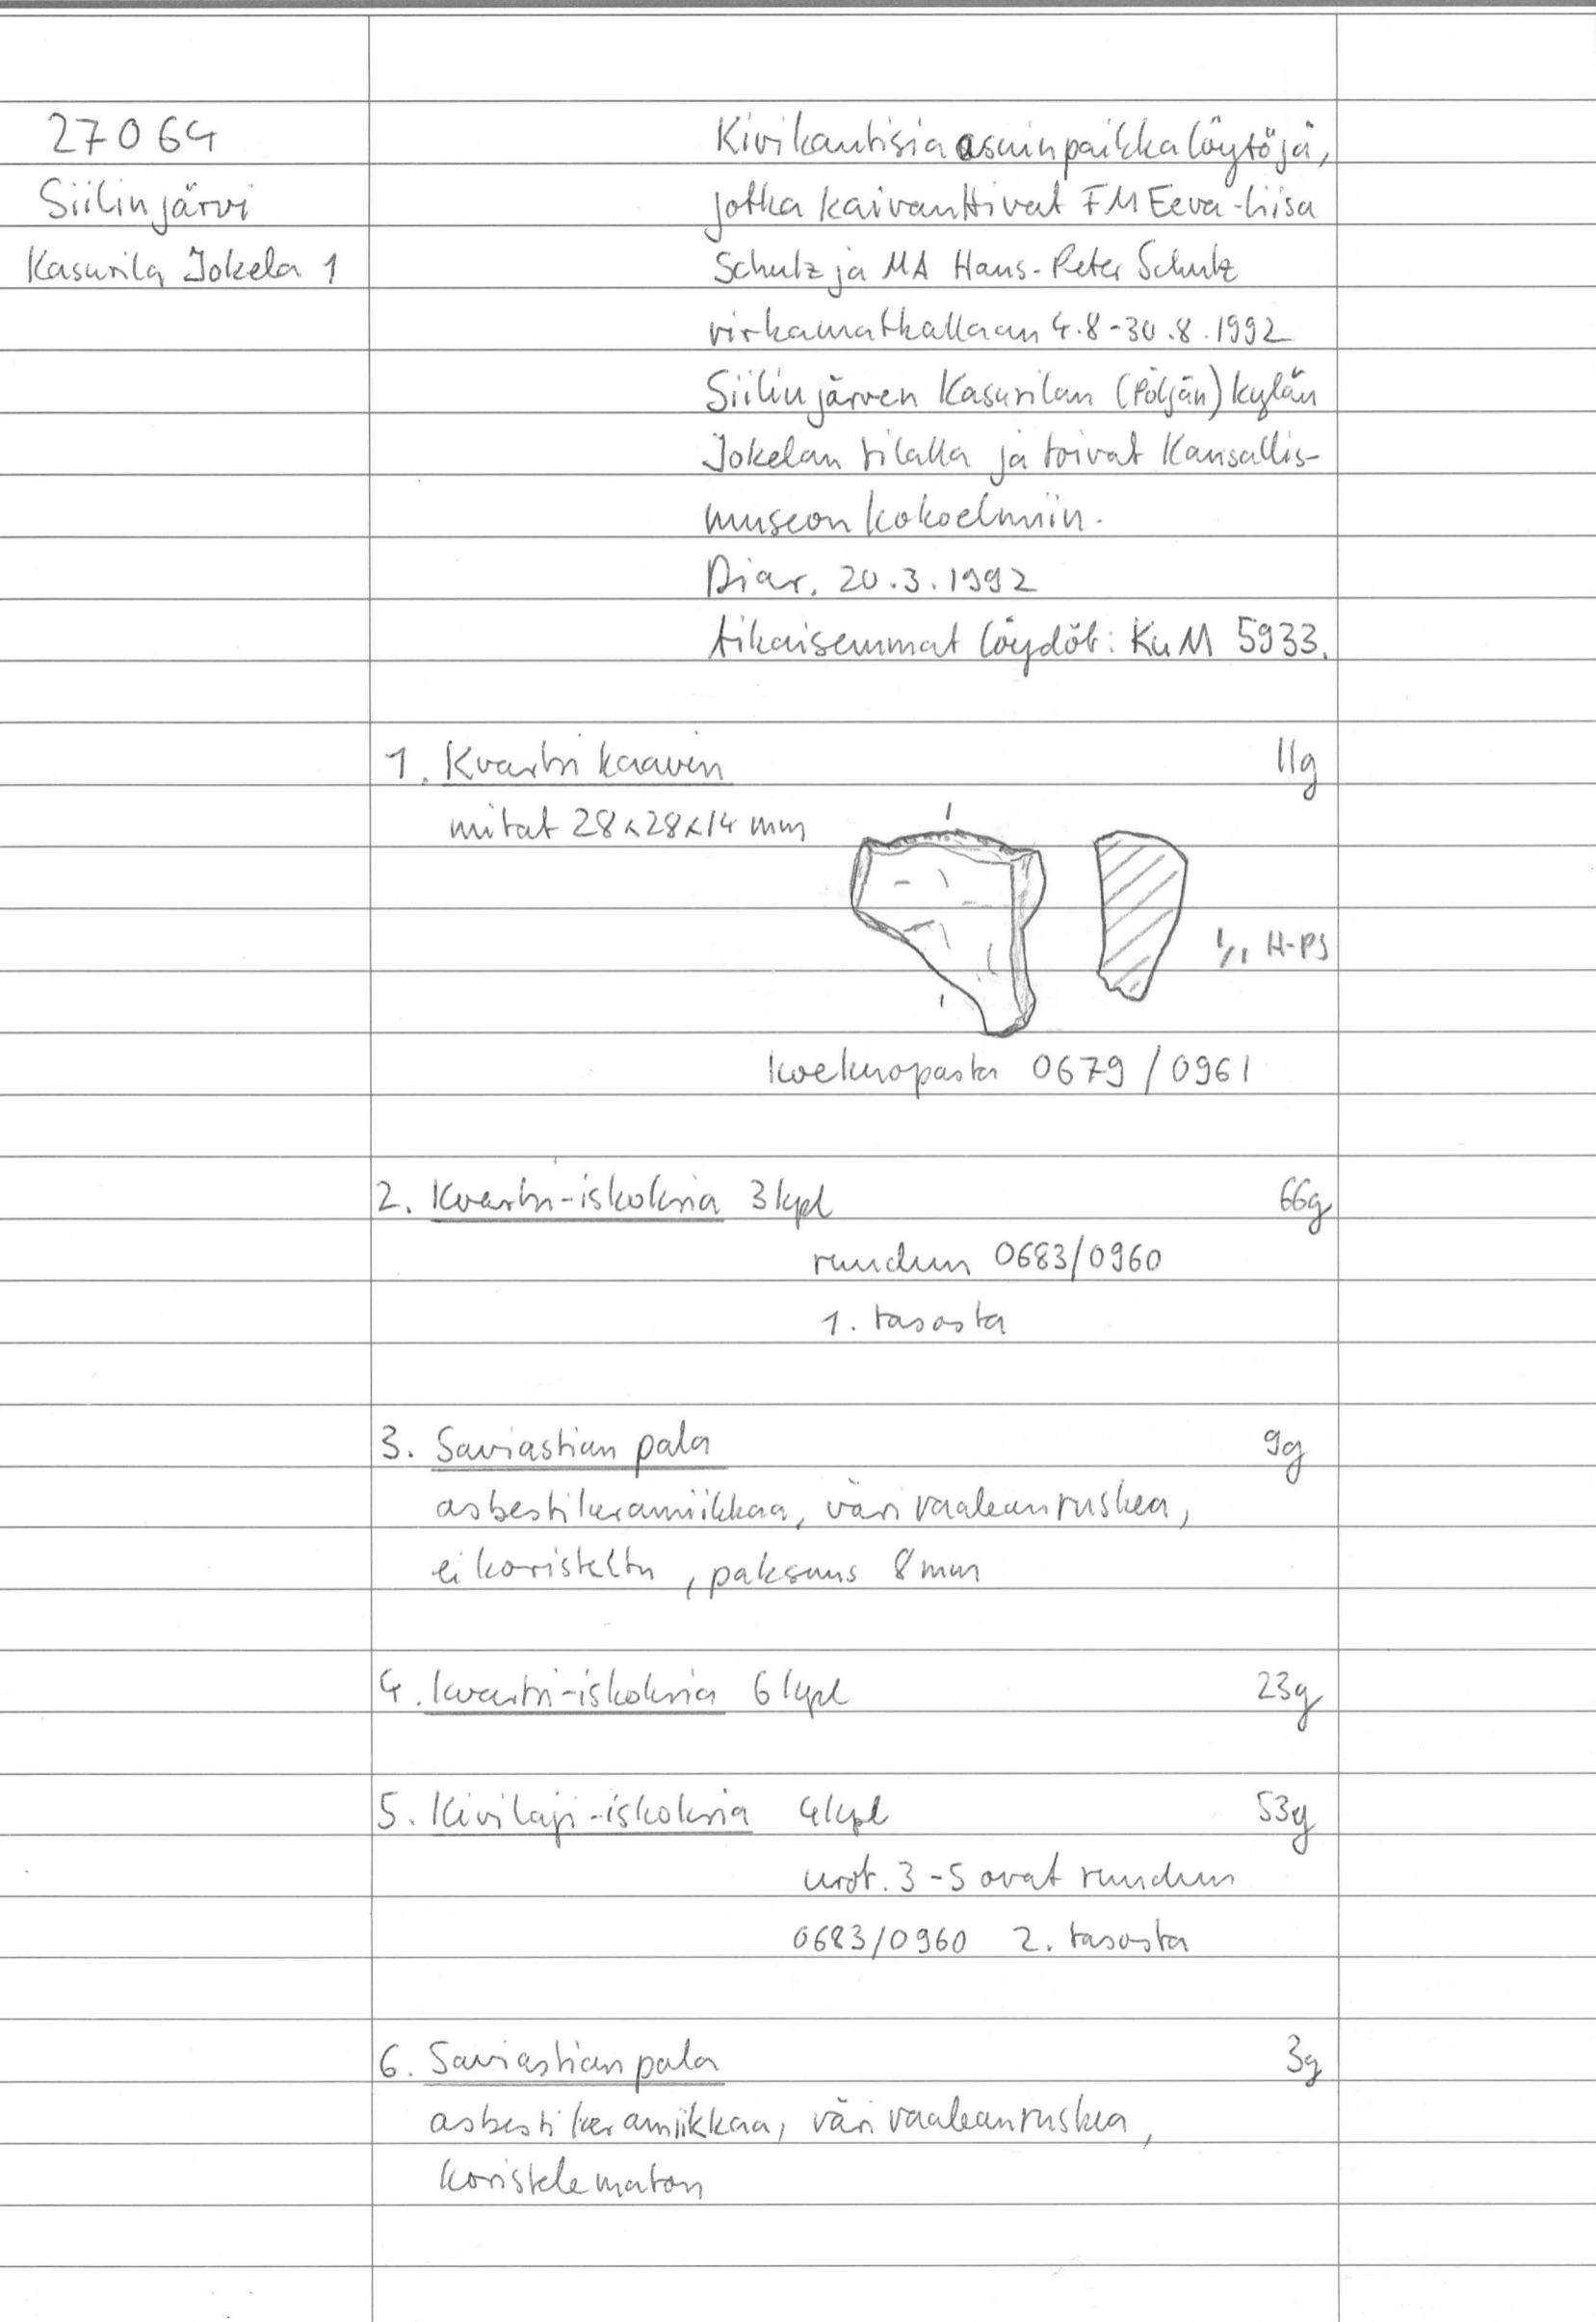 27064
Siilinjärvi
Kasurila Jokela 1
Kivikautisia asuinpaikkalöytöjä,
jotka kaivauttivat FM Eeva-Liisa
Schulz ja MA Hans-Peter Schulz
virkamatkallaan 4.8-30.8.1992
Siilinjärven Kasurilan (Pöljän) kylän
Jokelan tilalla ja toivat Kansallis-
museon kokoelmiin.
Diar. 20.3.1992
Aikaisemmat löydöt: KuM 5933.
1. Kvartsikaavin 11g
mitat 28x28x14 mm
1/1 H-PS
koekuopasta 0679/0961
2. Kvartsi-iskoksia 3 kpl 66g
ruudun 0683/0960
1. tasosta
3. Saviastian pala 9g
asbestikeramiikkaa, väri vaaleanruskea,
ei koristeltu, paksuus 8mm
4. kvartsi-iskoksia 6 kpl 23g
5. Kivilaji-iskoksia 4kpl 53g
nrot. 3-5 ovat ruudun
0683/0960 2. tasosta
6. Saviastian pala 3g
asbestikeramiikkaa, väri vaaleanruskea,
koristelematon